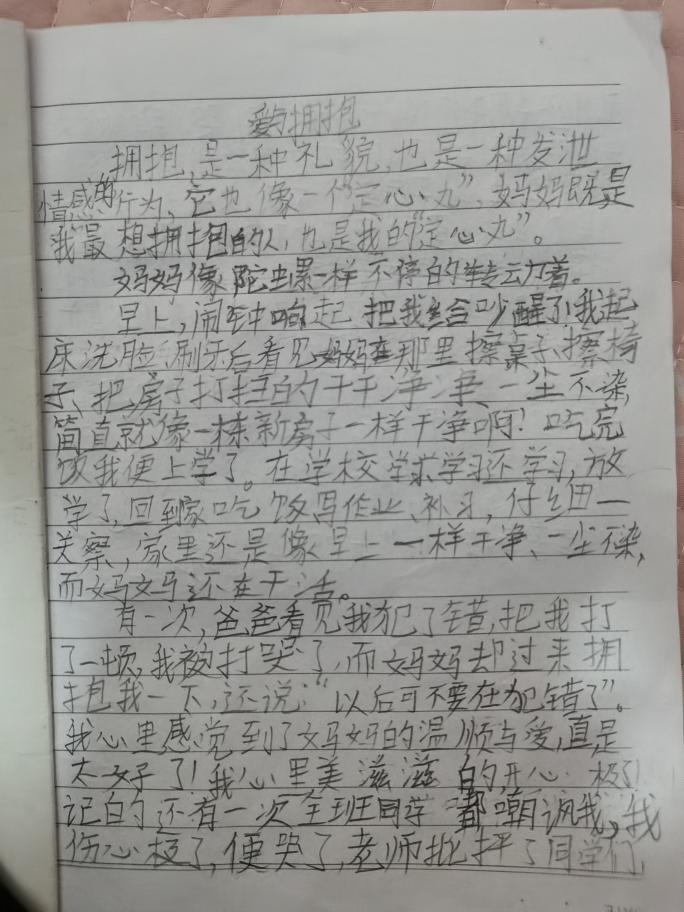 爱与拥抱
拥抱,是一种“礼”貌,也是一种发泄
情感的行为,它也像一个“定心丸”,妈妈既是
我最想拥抱的人,也是我的“定心丸”。
妈妈像陀螺一样不停的转动着。
早上,闹钟响起 把我给吵醒了!我起
床洗脸,刷牙后看见妈妈在那里擦桌子、擦椅
子、把房子打扫的干干净净、一尘不染,
简直就像一栋新房子一样干净啊!吃完
饭我便上学了。在学校学习还学习,放
学了,回到家吃饭写作业、补习,仔细一
关察,家里还是像早上一样干净、一尘不染,
而妈妈还在干活。
有一次,爸爸看见我犯了错,把我打
了一顿,我被打哭了,而妈妈却过来拥
抱我一下,还说:“以后可不要在犯错了”。
我心里感觉到了妈妈的温顺与爱,真是
太好了!我心里美滋滋的,开心极了!
记的还有一次全班同学都嘲讽我,我
伤心极了,便哭了,老师批评了同学们,